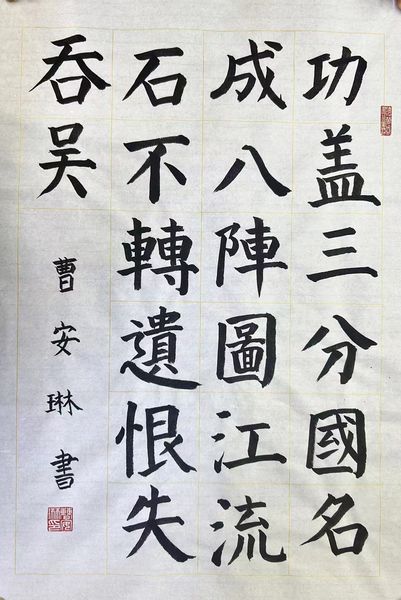 功盖三分國名
成八陣圖江流
石不轉遺恨失
吞吴
曹安琳書